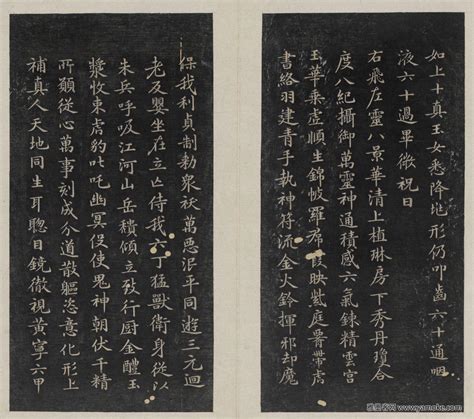 如上十真玉女悉降地形仍叩齒六十通咽
液六十過畢微祝曰
右飛左靈八景華清上植琳房下秀丹瓊合
度八紀攝御萬靈神通積感六氣鍊精雲宮
玉華乘虛順生錦帔羅帬霞映紫庭腰帶虎
書絡羽建青手執神符流金火鈴揮邪却魔
保我利貞制勑衆祅萬惡泯平同遊三元迴
老反嬰坐在立亡侍我六丁猛獸衛身從以
朱兵呼吸江河山岳穨傾立致行厨金醴玉
漿收束虎豹叱吒幽冥役使鬼神朝伏千精
所願從心萬事刻成分道散軀恣意化形上
補真人天地同生耳聰目鏡徹視黄寧六甲
www.yamoke.com